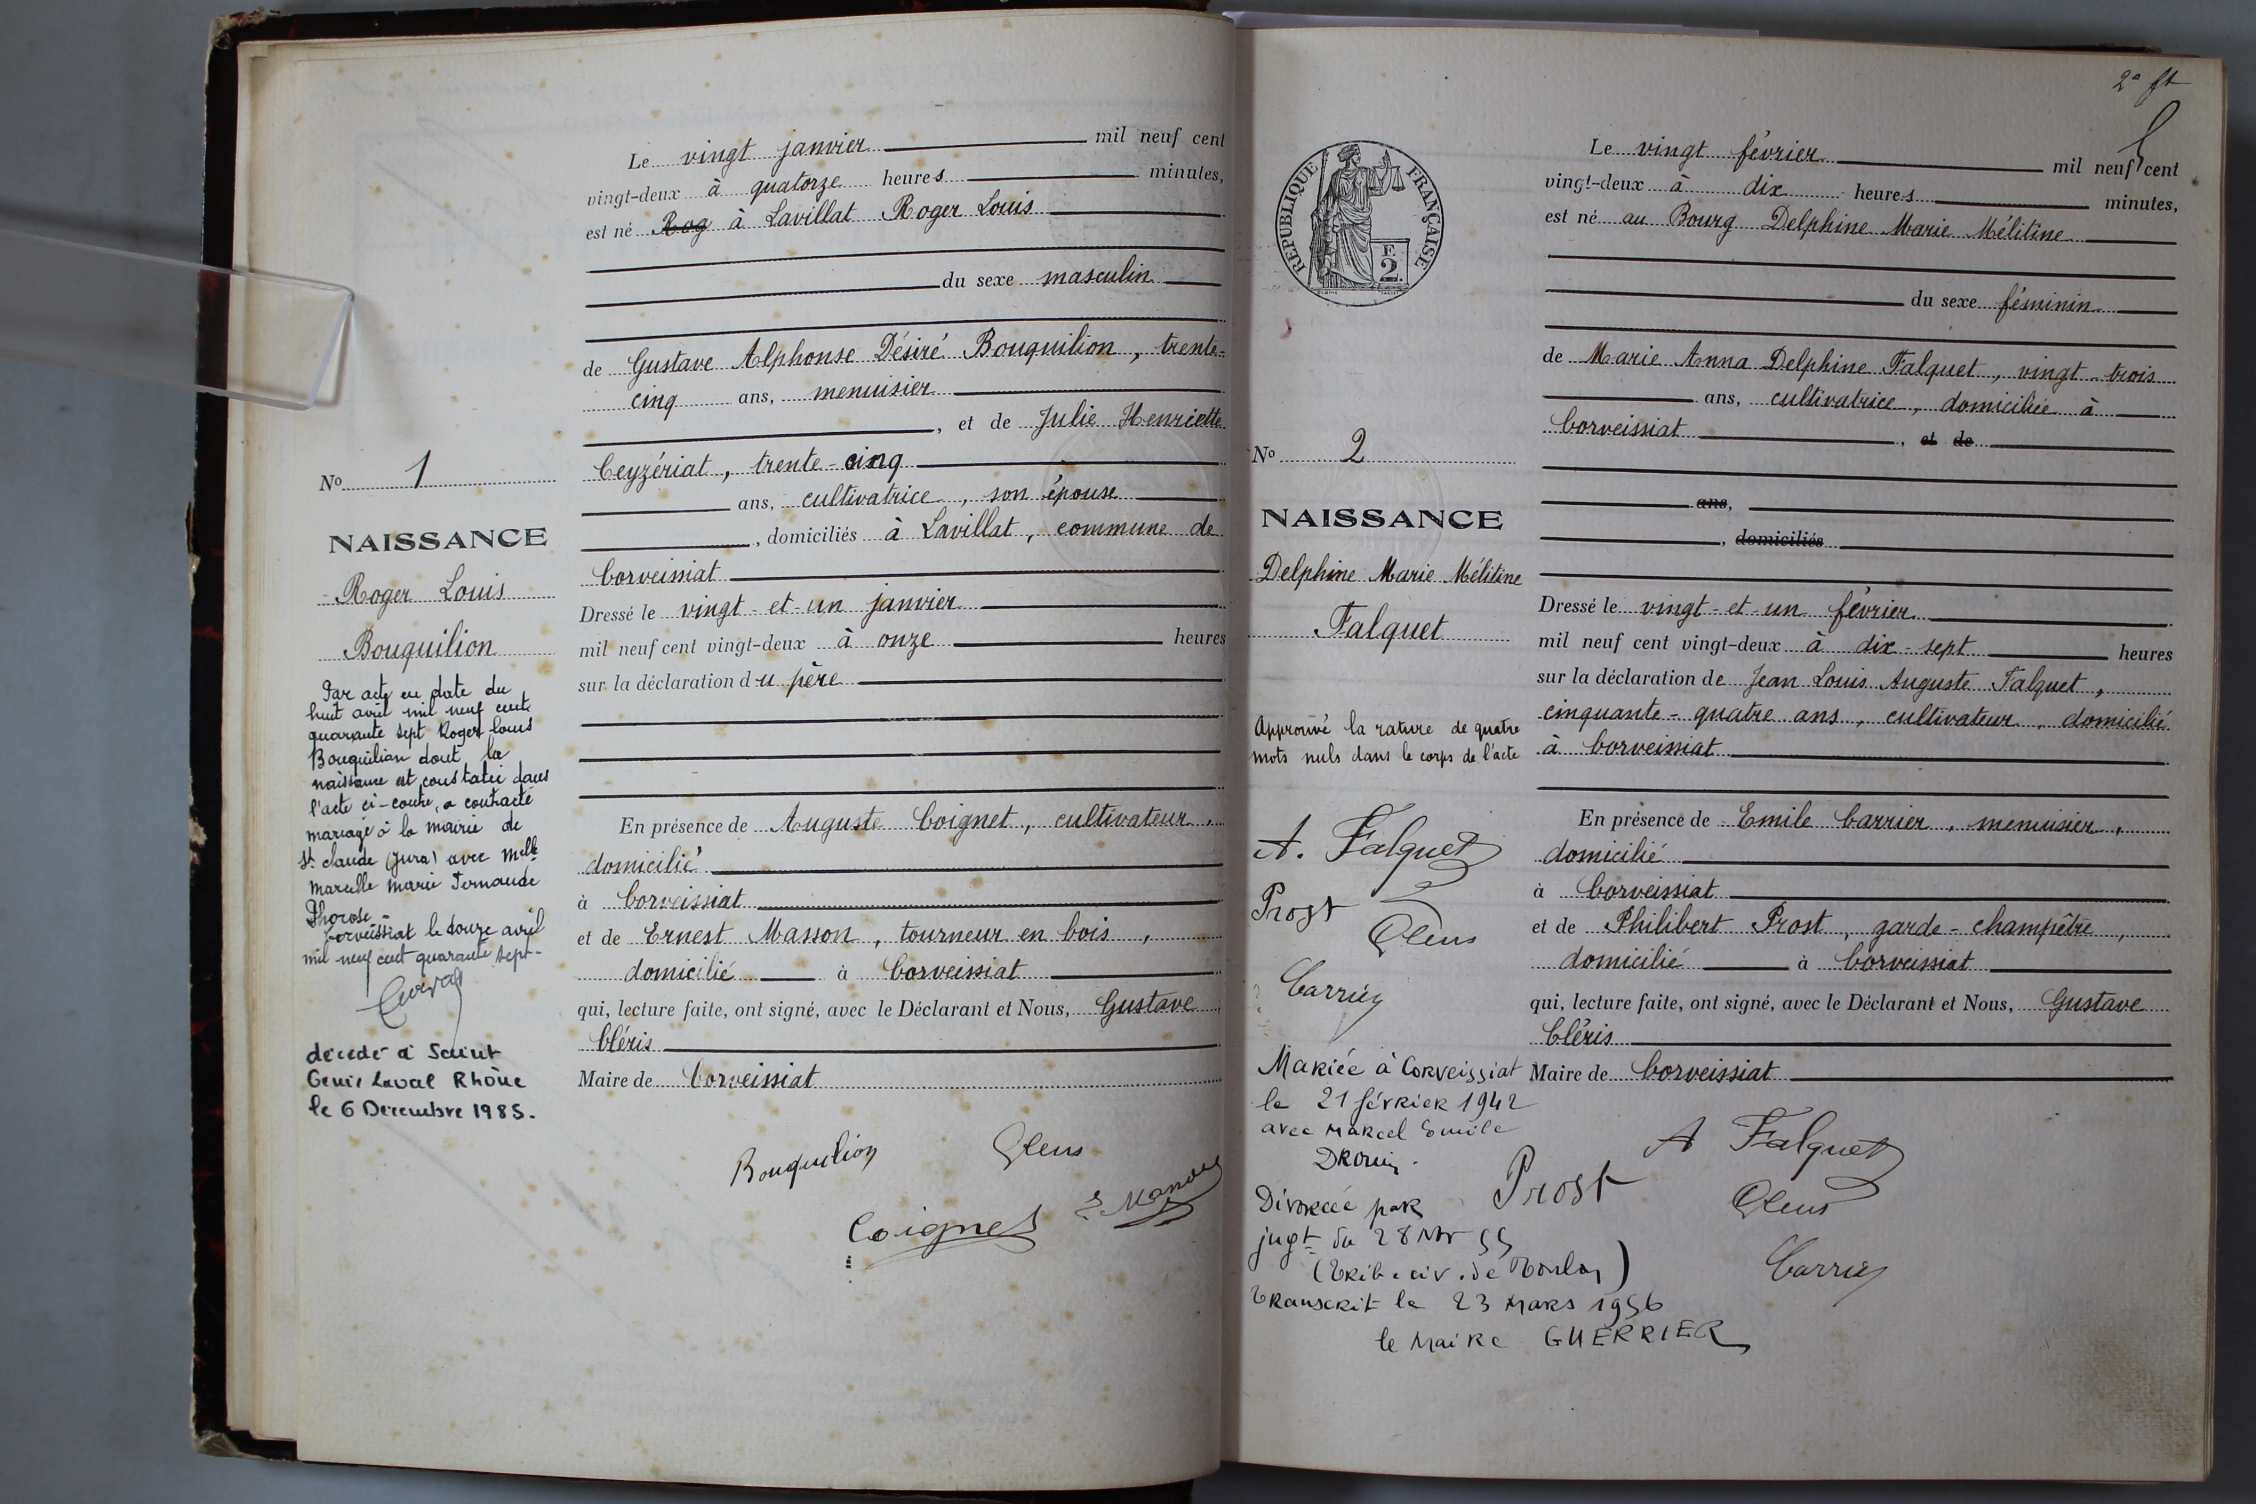 Le vingt janvier mil neuf cent
vingt-deux à quatorze heures minutes,
est né Rog à Lavillat Roger Louis
du sexe masculin
de Gustave Alphonse Désiré Bouquilion, trente-
cinq ans, menuisier
, et de Julie Henriette
Ceyzériat, trente-cinq
ans, cultivatrice, son épouse
, domiciliés à Lavillat, commune de
Corveissiat
Dressé le vingt-et-un janvier
mil neuf cent vingt-deux à onze heures
sur la déclaration du père
En présence de Auguste Coignet, cultivateur,
domicilié
à Corveissiat
et de Ernest Masson, tourneur en bois,
domicilié à Corveissiat
qui, lecture faite, ont signé, avec le Déclarant et Nous, Gustave
Cléris
Maire de Corveissiat
Bouquilion
Coignet
No 1
NAISSANCE
Roger Louis
Bouquilion
Par acte en date du
huit avril mil neuf cent
quarante sept Roger Louis
Bouquilion dont la
naissance est constatée dans
l'acte ci-contre, a contracté
mariage à la mairie de
St Claude (Jura) avec Melle
Marcelle Marie Fernande
Corveissiat le douze avril
mil neuf cent quarante sept-
décédé à Saint
Genis Laval Rhône
le 6 Décembre 1985.
2e ft
RÉPUBLIQUE FRANÇAISE
F.
2.
Le vingt février mil neuf cent
vingt-deux à dix heures minutes,
est né au Bourg Delphine Marie Mélitine
du sexe féminin
de Marie Anna Delphine Falquet, vingt-trois
ans, cultivatrice, domiciliée à
Corveissiat, et de
ans,
, domiciliés
Dressé le vingt-et-un février
mil neuf cent vingt-deux à dix-sept heures
sur la déclaration de Jean Louis Auguste Falquet,
cinquante-quatre ans, cultivateur, domicilié
à Corveissiat
En présence de Emile Carrier, menuisier,
domicilié
à Corveissiat
et de Philibert Prost, garde-champêtre,
domicilié à Corveissiat
qui, lecture faite, ont signé, avec le Déclarant et Nous, Gustave
Cléris
Maire de Corveissiat
A Falquet
Prost
Carrier
No 2
NAISSANCE
Delphine Marie Mélitine
Falquet
Approuvé la rature de quatre
mots nuls dans le corps de l'acte
A. Falquet
Prost
Carrier
Mariée à Corveissiat
le 21 février 1942
avec Marcel Emile
Drouin.
Divorcée par
jugt du 28 Nov 55
(Trib. civ. de Toulon)
Transcrit le 23 Mars 1956
le Maire GUERRIER